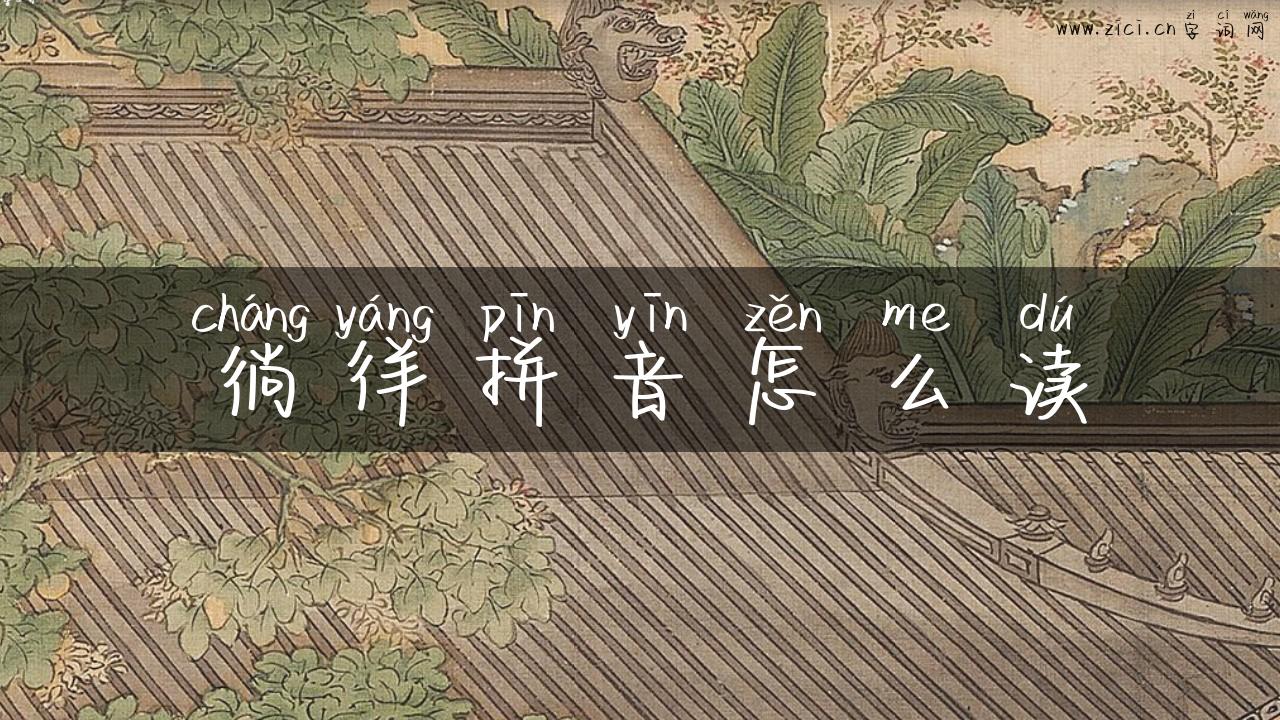 zì cí wǎng
www.zici.cn 字词网
cháng yáng pīn yīn zěn me dú
徜徉拼音怎么读